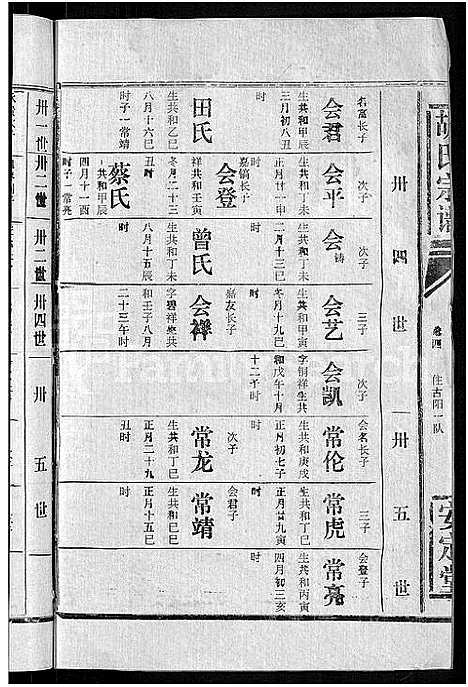 胡氏宗谱
卷四
住古阳一队
安定堂
卅四世
卅五世
名富长子
会君
生共和甲辰
三月初八丑
时
田氏
生共和乙巳
八月十六巳
时子一常靖
次子
会平
生共和甲辰
正月廿一申
时
嘉镐长子
会登
祥共和壬寅
冬月二十三
丑时
蔡氏
共和甲辰
四月十一酉
时子一常亮
次子
会铸
生共和丁未
二月十三巳
时
曾氏
生共和丁未
八月十五辰
时
三子
会艺
生共和丁巳
冬月十九巳
时
嘉友长子
会祥
字碧祥生共
和壬子八月
二十三午时
次子
会凯
字铜祥生共
和戊午十月
十二子时
会名长子
常伦
生共和庚戌
正月初七子
时
次子
常龙
生共和丁巳
正月二十九
丑时
三子
常虎
生共和丁巳
正月廿九寅
时
会君子
常靖
生共和丁巳
正月十五巳
时
会登子
常亮
生共和丙寅
四月初三亥
时
卅一世
卅二世
卅三世
卅四世
卅五世